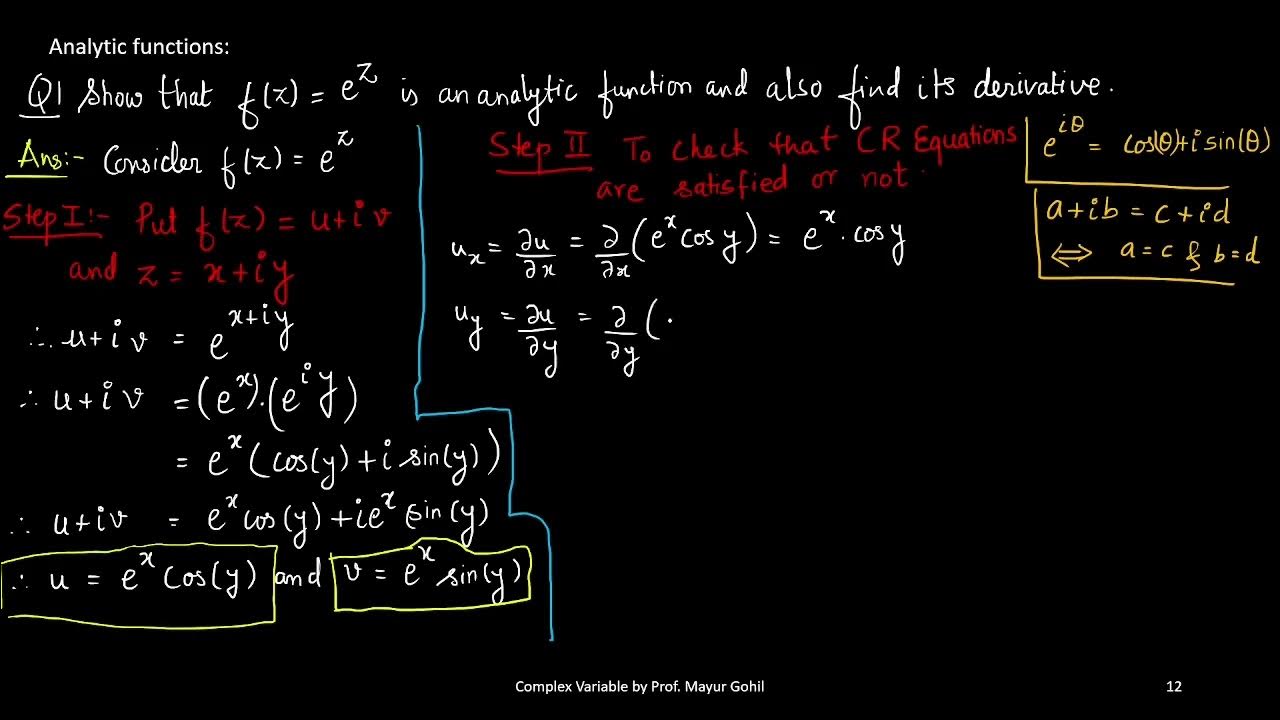 Analytic functions:
Q1 Show that f(z) = e^z is an analytic function and also find its derivative.
Ans:- Consider f(z) = e^z
Step I:- Put f(z) = u+iv
and z = x+iy
∴ u+iv = e^{x+iy}
∴ u+iv = (e^x)·(e^{iy})
= e^x (cos(y) + i sin(y))
∴ u+iv = e^x cos(y) + ie^x sin(y)
∴ u = e^x cos(y) and v = e^x sin(y)
Step II To check that CR Equations
are satisfied or not.
u_x = ∂u/∂x = ∂/∂x (e^x cos y) = e^x · cos y
u_y = ∂u/∂y = ∂/∂y (·
e^{iθ} = cos(θ)+i sin(θ)
a+ib = c+id
⟺ a=c & b=d
Complex Variable by Prof. Mayur Gohil
12